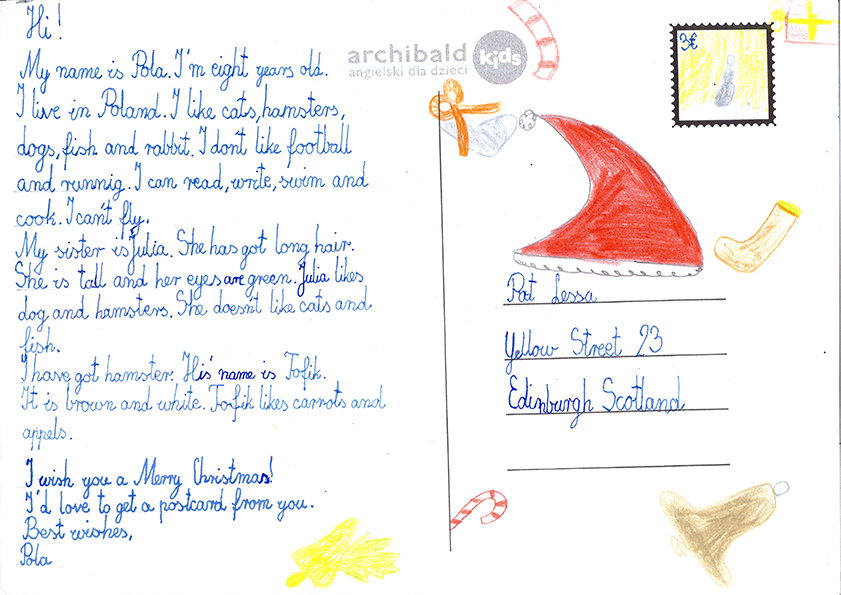 Hi!
My name is Pola. I'm eight years old.
I live in Poland. I like cats, hamsters,
dogs, fish and rabbit. I don't like football
and runnig. I can read, write, swim and
cook. I can't fly.
My sister is Julia. She has got long hair.
She is tall and her eyes are green. Julia likes
dog and hamsters. She doesn't like cats and
fish.
I have got hamster. His name is Tofik.
It is brown and white. Tofik likes carrots and
appels.
I wish you a Merry Christmas!
I'd love to get a postcard from you.
Best wishes,
Pola
archibald kids
angielski dla dzieci
3€
Pat Lessa
Yellow Street 23
Edinburgh Scotland